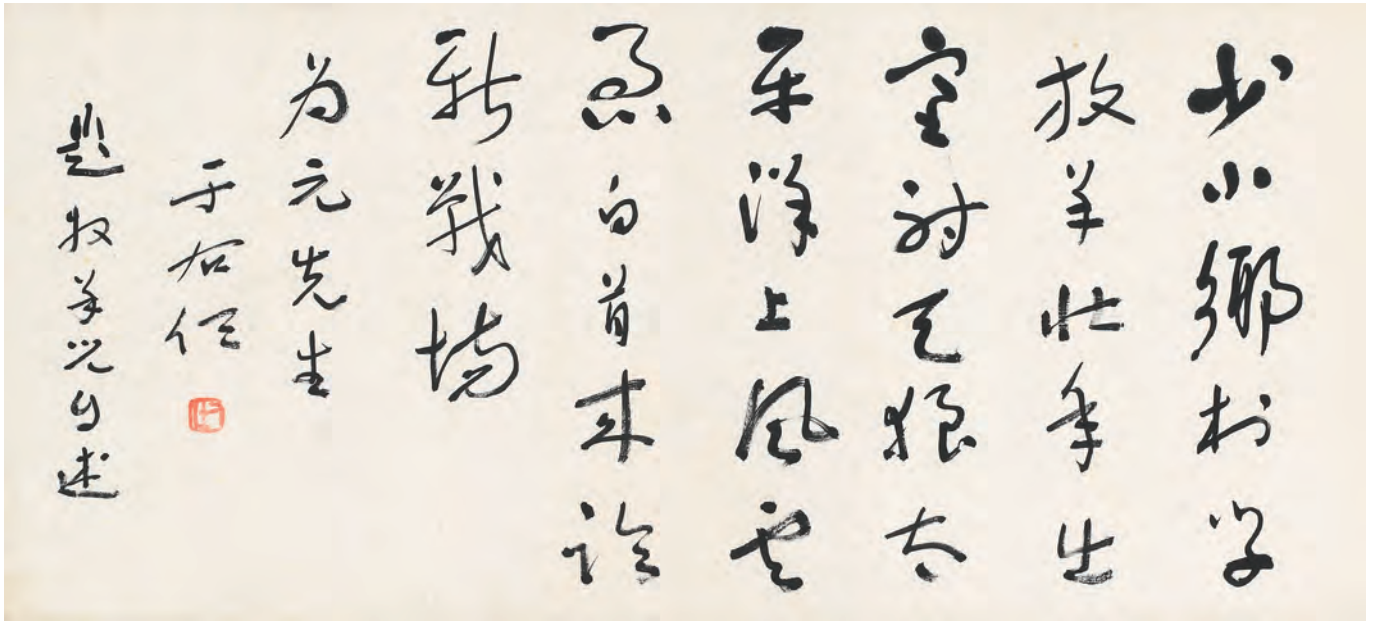 少小鄉村學
放羊壯年出
塞射天狼太
平洋上風雲
急白首來論
新戰場
為元先生
于右任
題牧羊兒自述